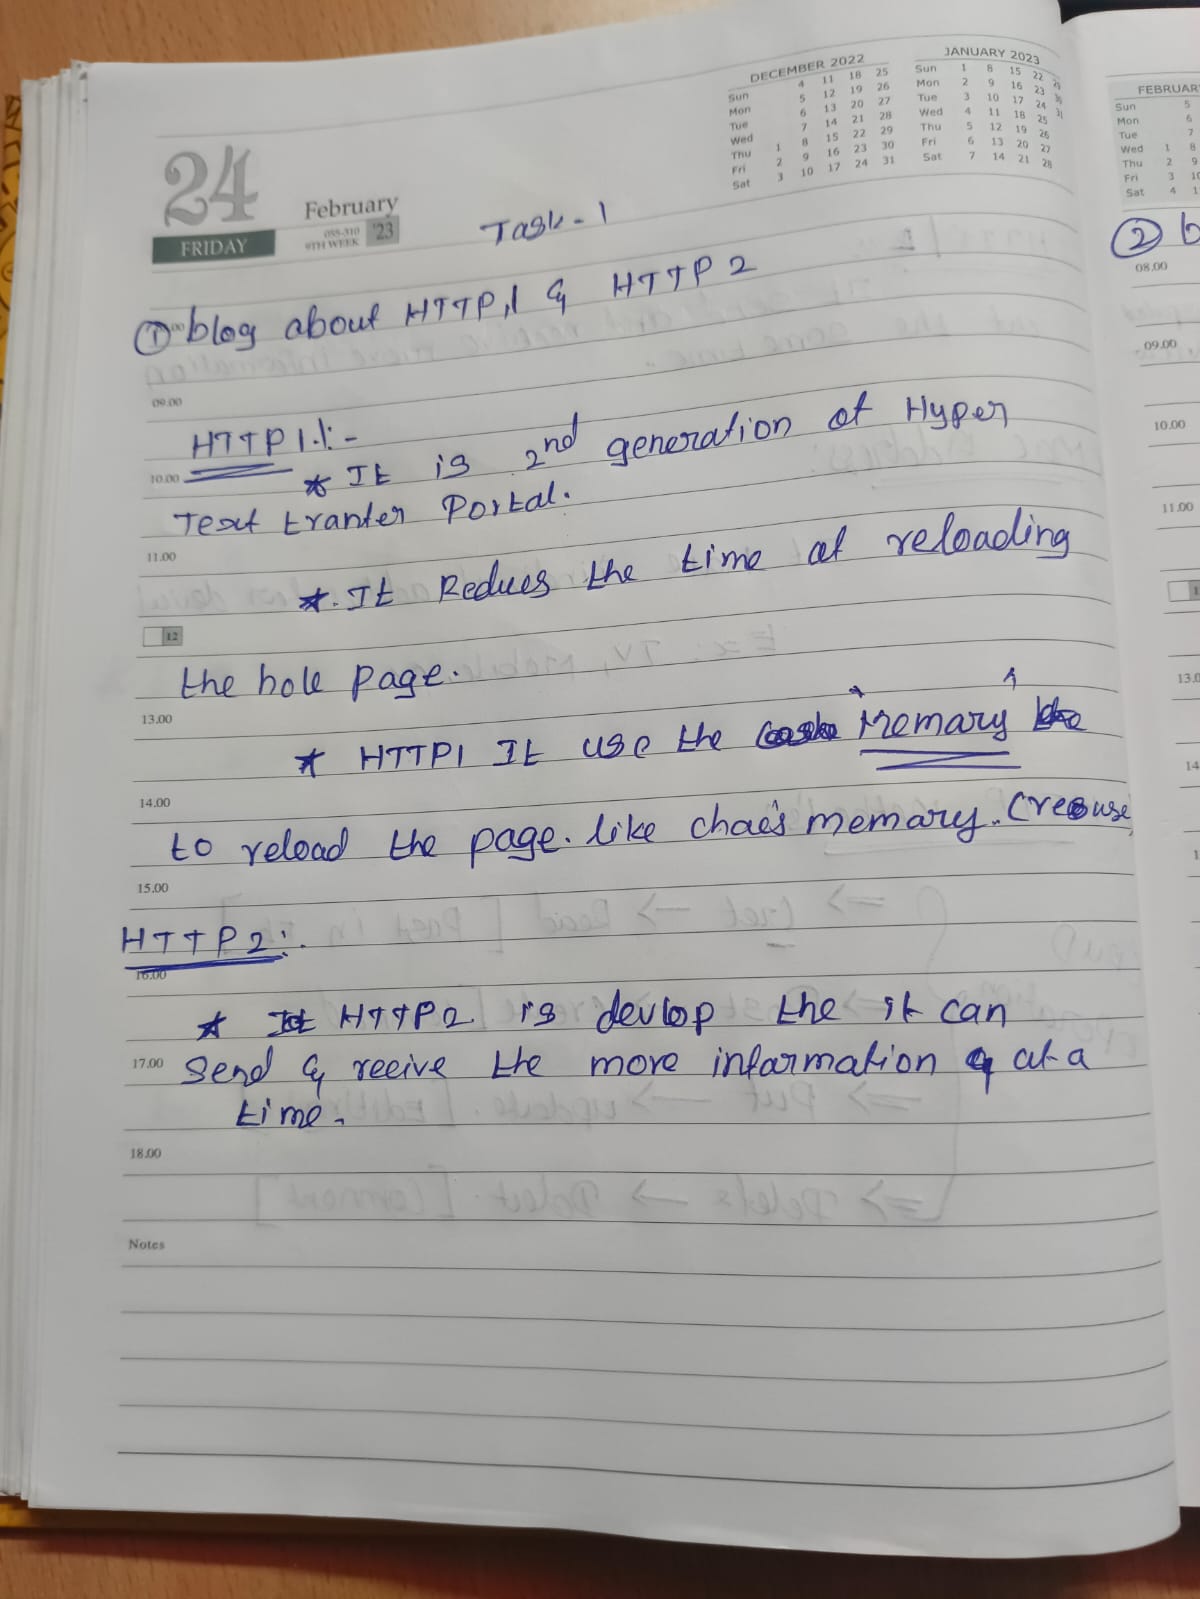 DECEMBER 2022
Sun 4 11 18 25
Mon 5 12 19 26
Tue 6 13 20 27
Wed 7 14 21 28
Thu 1 8 15 22 29
Fri 2 9 16 23 30
Sat 3 10 17 24 31
JANUARY 2023
Sun 1 8 15 22 29
Mon 2 9 16 23 30
Tue 3 10 17 24 31
Wed 4 11 18 25
Thu 5 12 19 26
Fri 6 13 20 27
Sat 7 14 21 28
24
FRIDAY
February
055-310
9TH WEEK '23
Task-1
① blog about HTTP,1 & HTTP2
09.00
HTTP1.1:-
10.00 * It is 2nd generation of Hyper
Text tranter Portal.
11.00
*. It Reduces the time of reloading
12
the hole page.
13.00
* HTTP1 It use the memary
14.00
to reload the page. like chae's memary. (reuse
15.00
HTTP2:.
16.00
* HTTP2 is devlop the it can
17.00 send & receive the more information at a
time.
18.00
Notes
FEBRUAR
Sun 5
Mon 6
Tue 7
Wed 1 8
Thu 2 9
Fri 3 10
Sat 4 1
② b
08.00
09.00
10.00
11.00
13.0
14